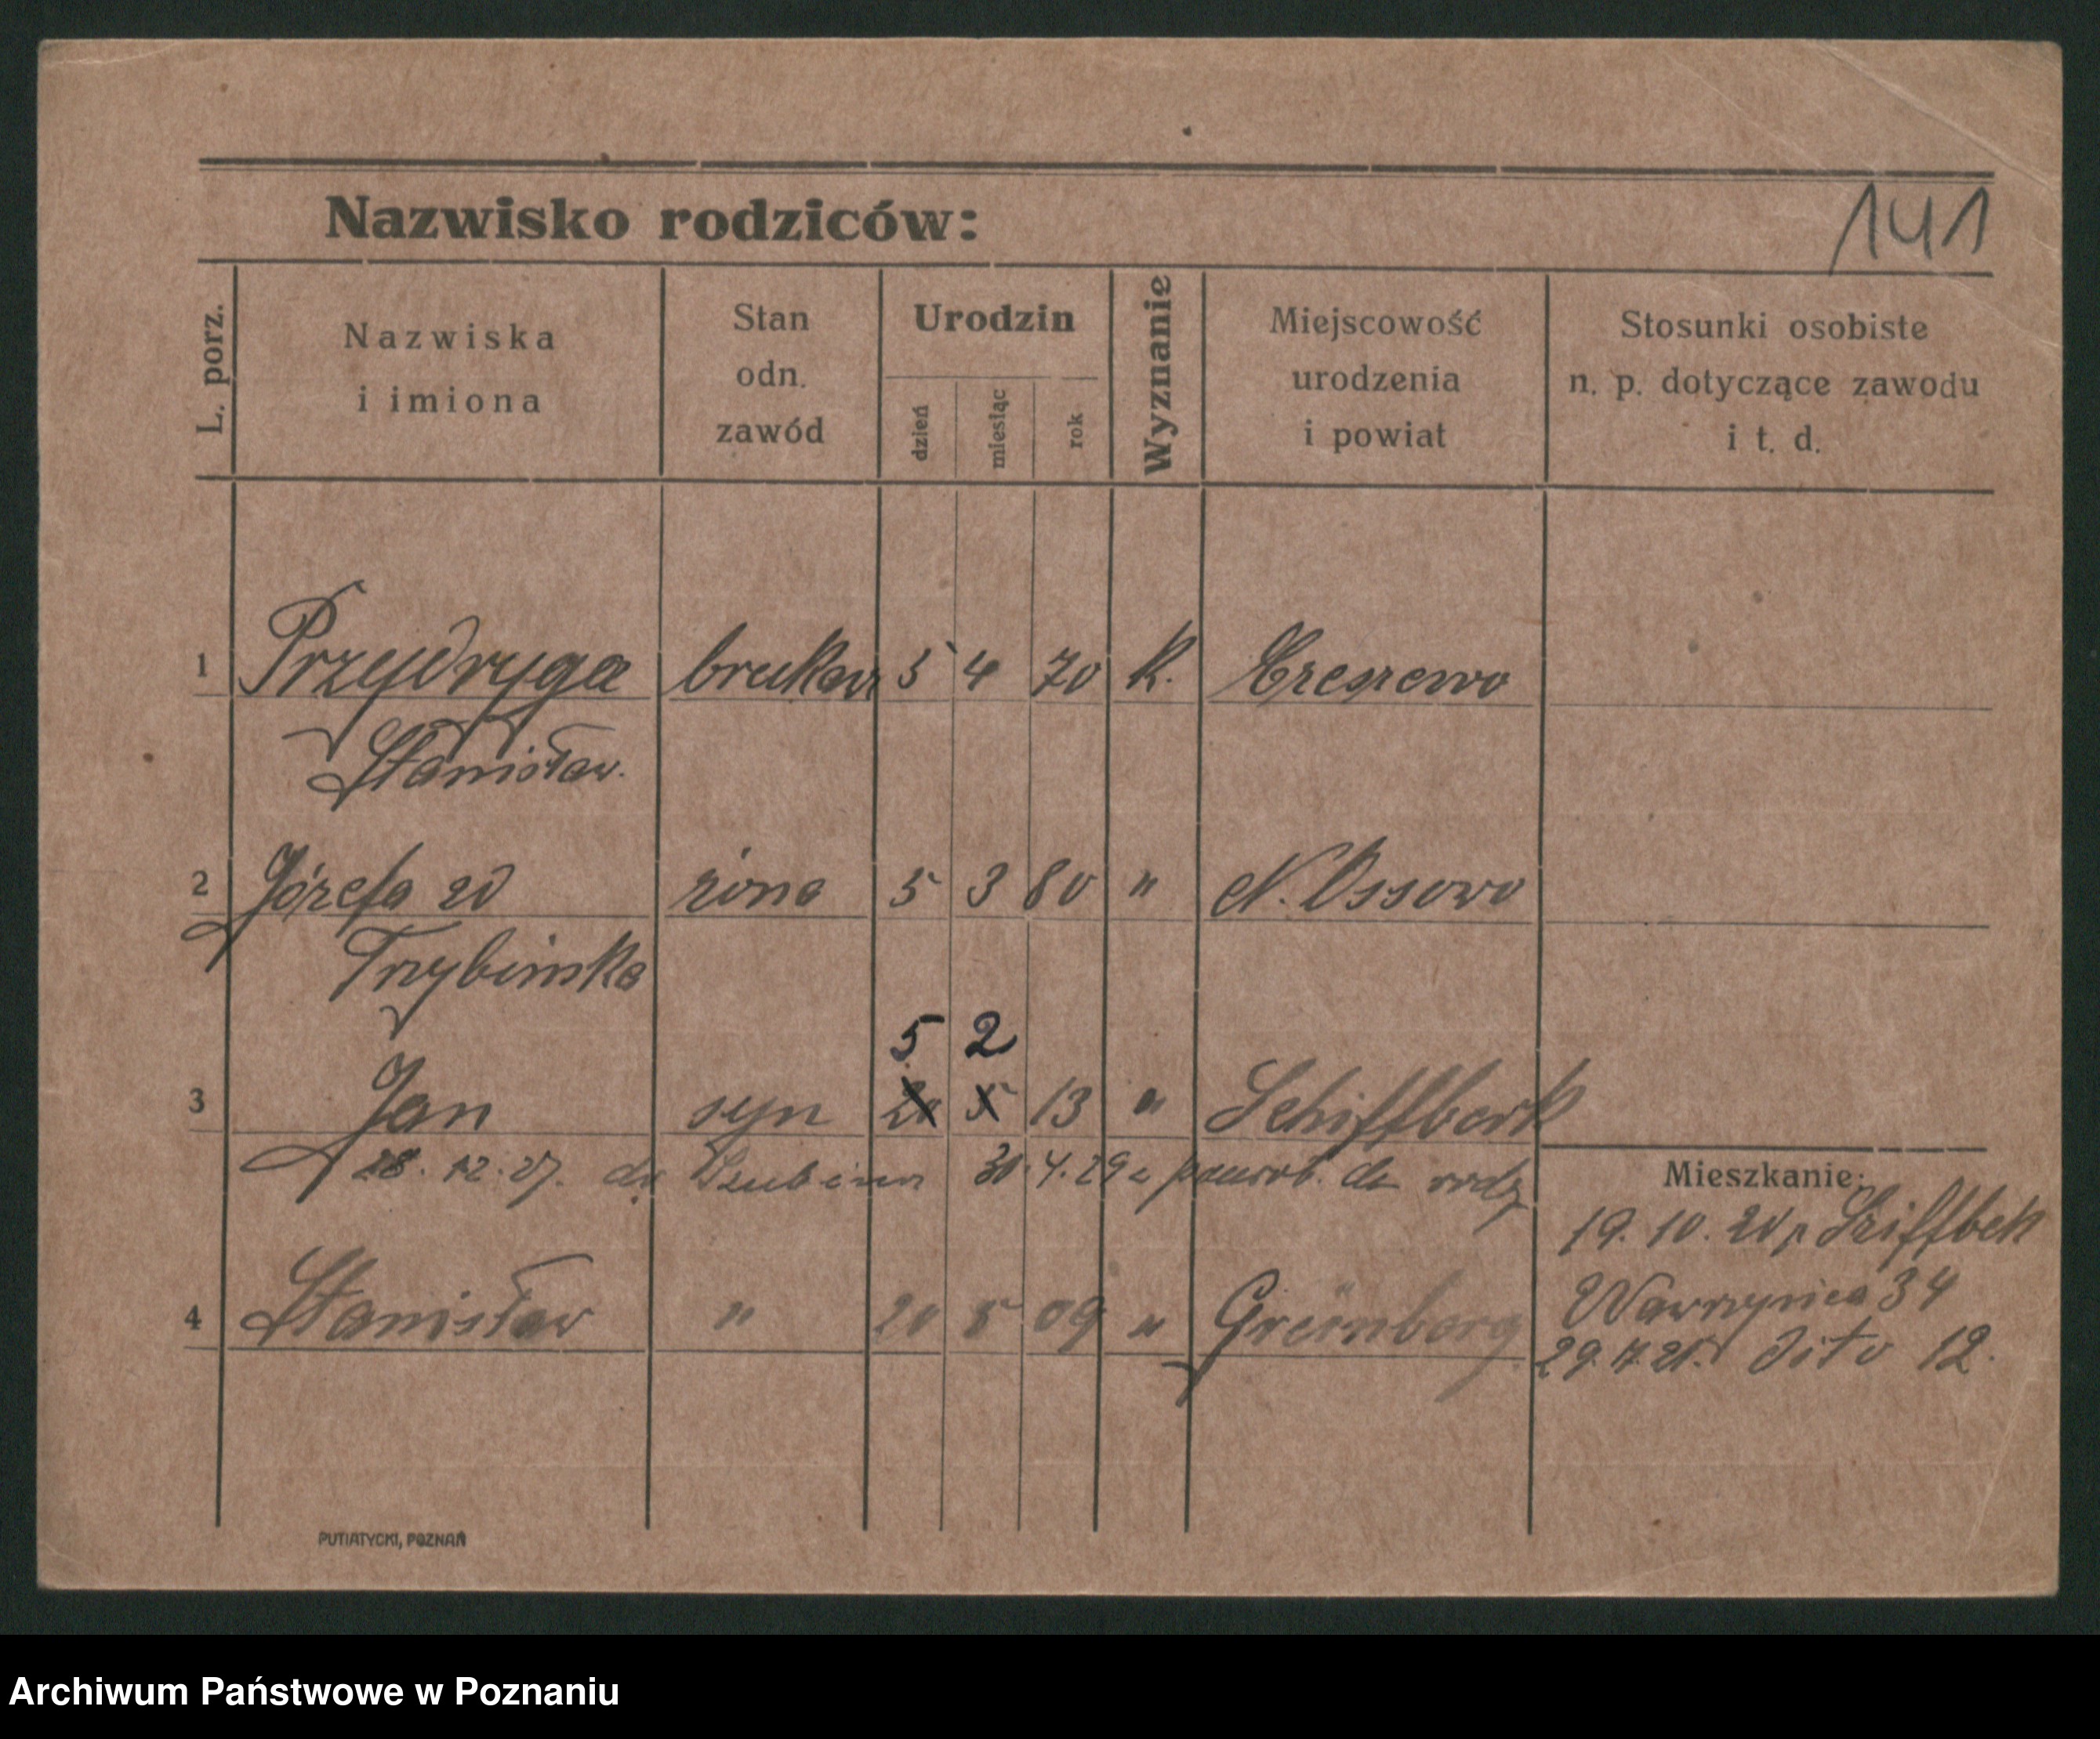 141
Nazwisko rodziców:
L. porz.
Nazwiska
i imiona
Stan
odn.
zawód
Urodzin
dzień
miesiąc
rok
Wyznanie
Miejscowość
urodzenia
i powiat
Stosunki osobiste
n. p. dotyczące zawodu
i t. d.
1 Przydryga brukarz 5 4 70 K.
Stanisław.
2 Józefa zd żona 5 3 80 " N. Ossowo
Trzybińska
5 2
3 Jan syn 20 5 13 " Schiffberk
28. 12. 27. do Szubina 30. 4. 29 z powrb. do rodz
Mieszkanie:
19. 10. 20 Sziffbek
4 Stanisław " 20 5 09 " Grünberg
Wawrzyńca 34
dito 12.
PUTIATYCKI, POZNAŃ
Archiwum Państwowe w Poznaniu